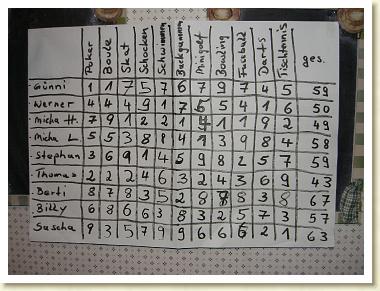 Poker Boule Skat Schocken Schwimmen Backgammon Minigolf Bowling Fussball Darts Tischtennis ges.
Günni 1 1 7 5 7 6 7 9 7 4 5 59
Werner 4 4 4 9 1 7 5 5 4 1 6 50
Micha H. 7 9 1 2 2 1 1 1 9 2 49
Micha L. 5 5 3 8 8 4 1 3 9 8 4 58
Stephan 3 6 9 1 4 5 9 8 2 5 7 59
Thomas 2 2 2 4 6 3 2 4 3 6 9 43
Berti 8 7 8 3 5 2 8 7 8 3 8 67
Billy 6 8 6 6 3 8 3 2 5 7 3 57
Sascha 9 3 5 7 9 9 6 6 6 2 1 63